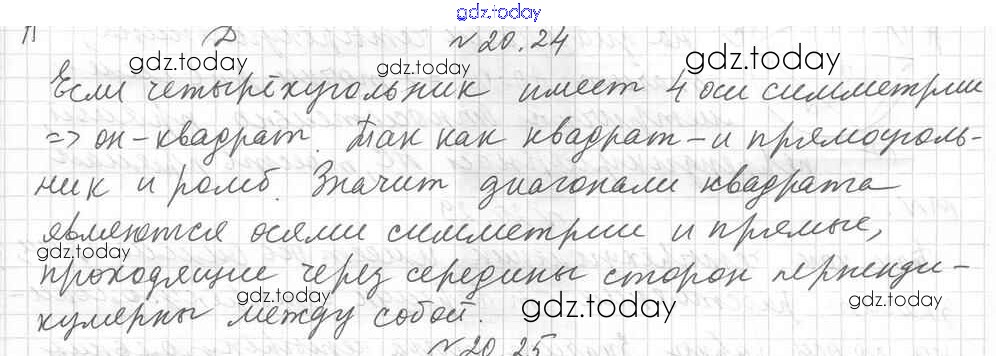 gdz.today
№ 20.24
gdz.today gdz.today gdz.today
Если четырёхугольник имеет 4 оси симметрии
=> он - квадрат. Так как квадрат - и прямоуголь-
ник и ромб. Значит диагонали квадрата
являются осями симметрии и прямые,
gdz.today
проходящие через середины сторон перпенди-
gdz.today gdz.today gdz.today
кулярны между собой.
№ 20.25